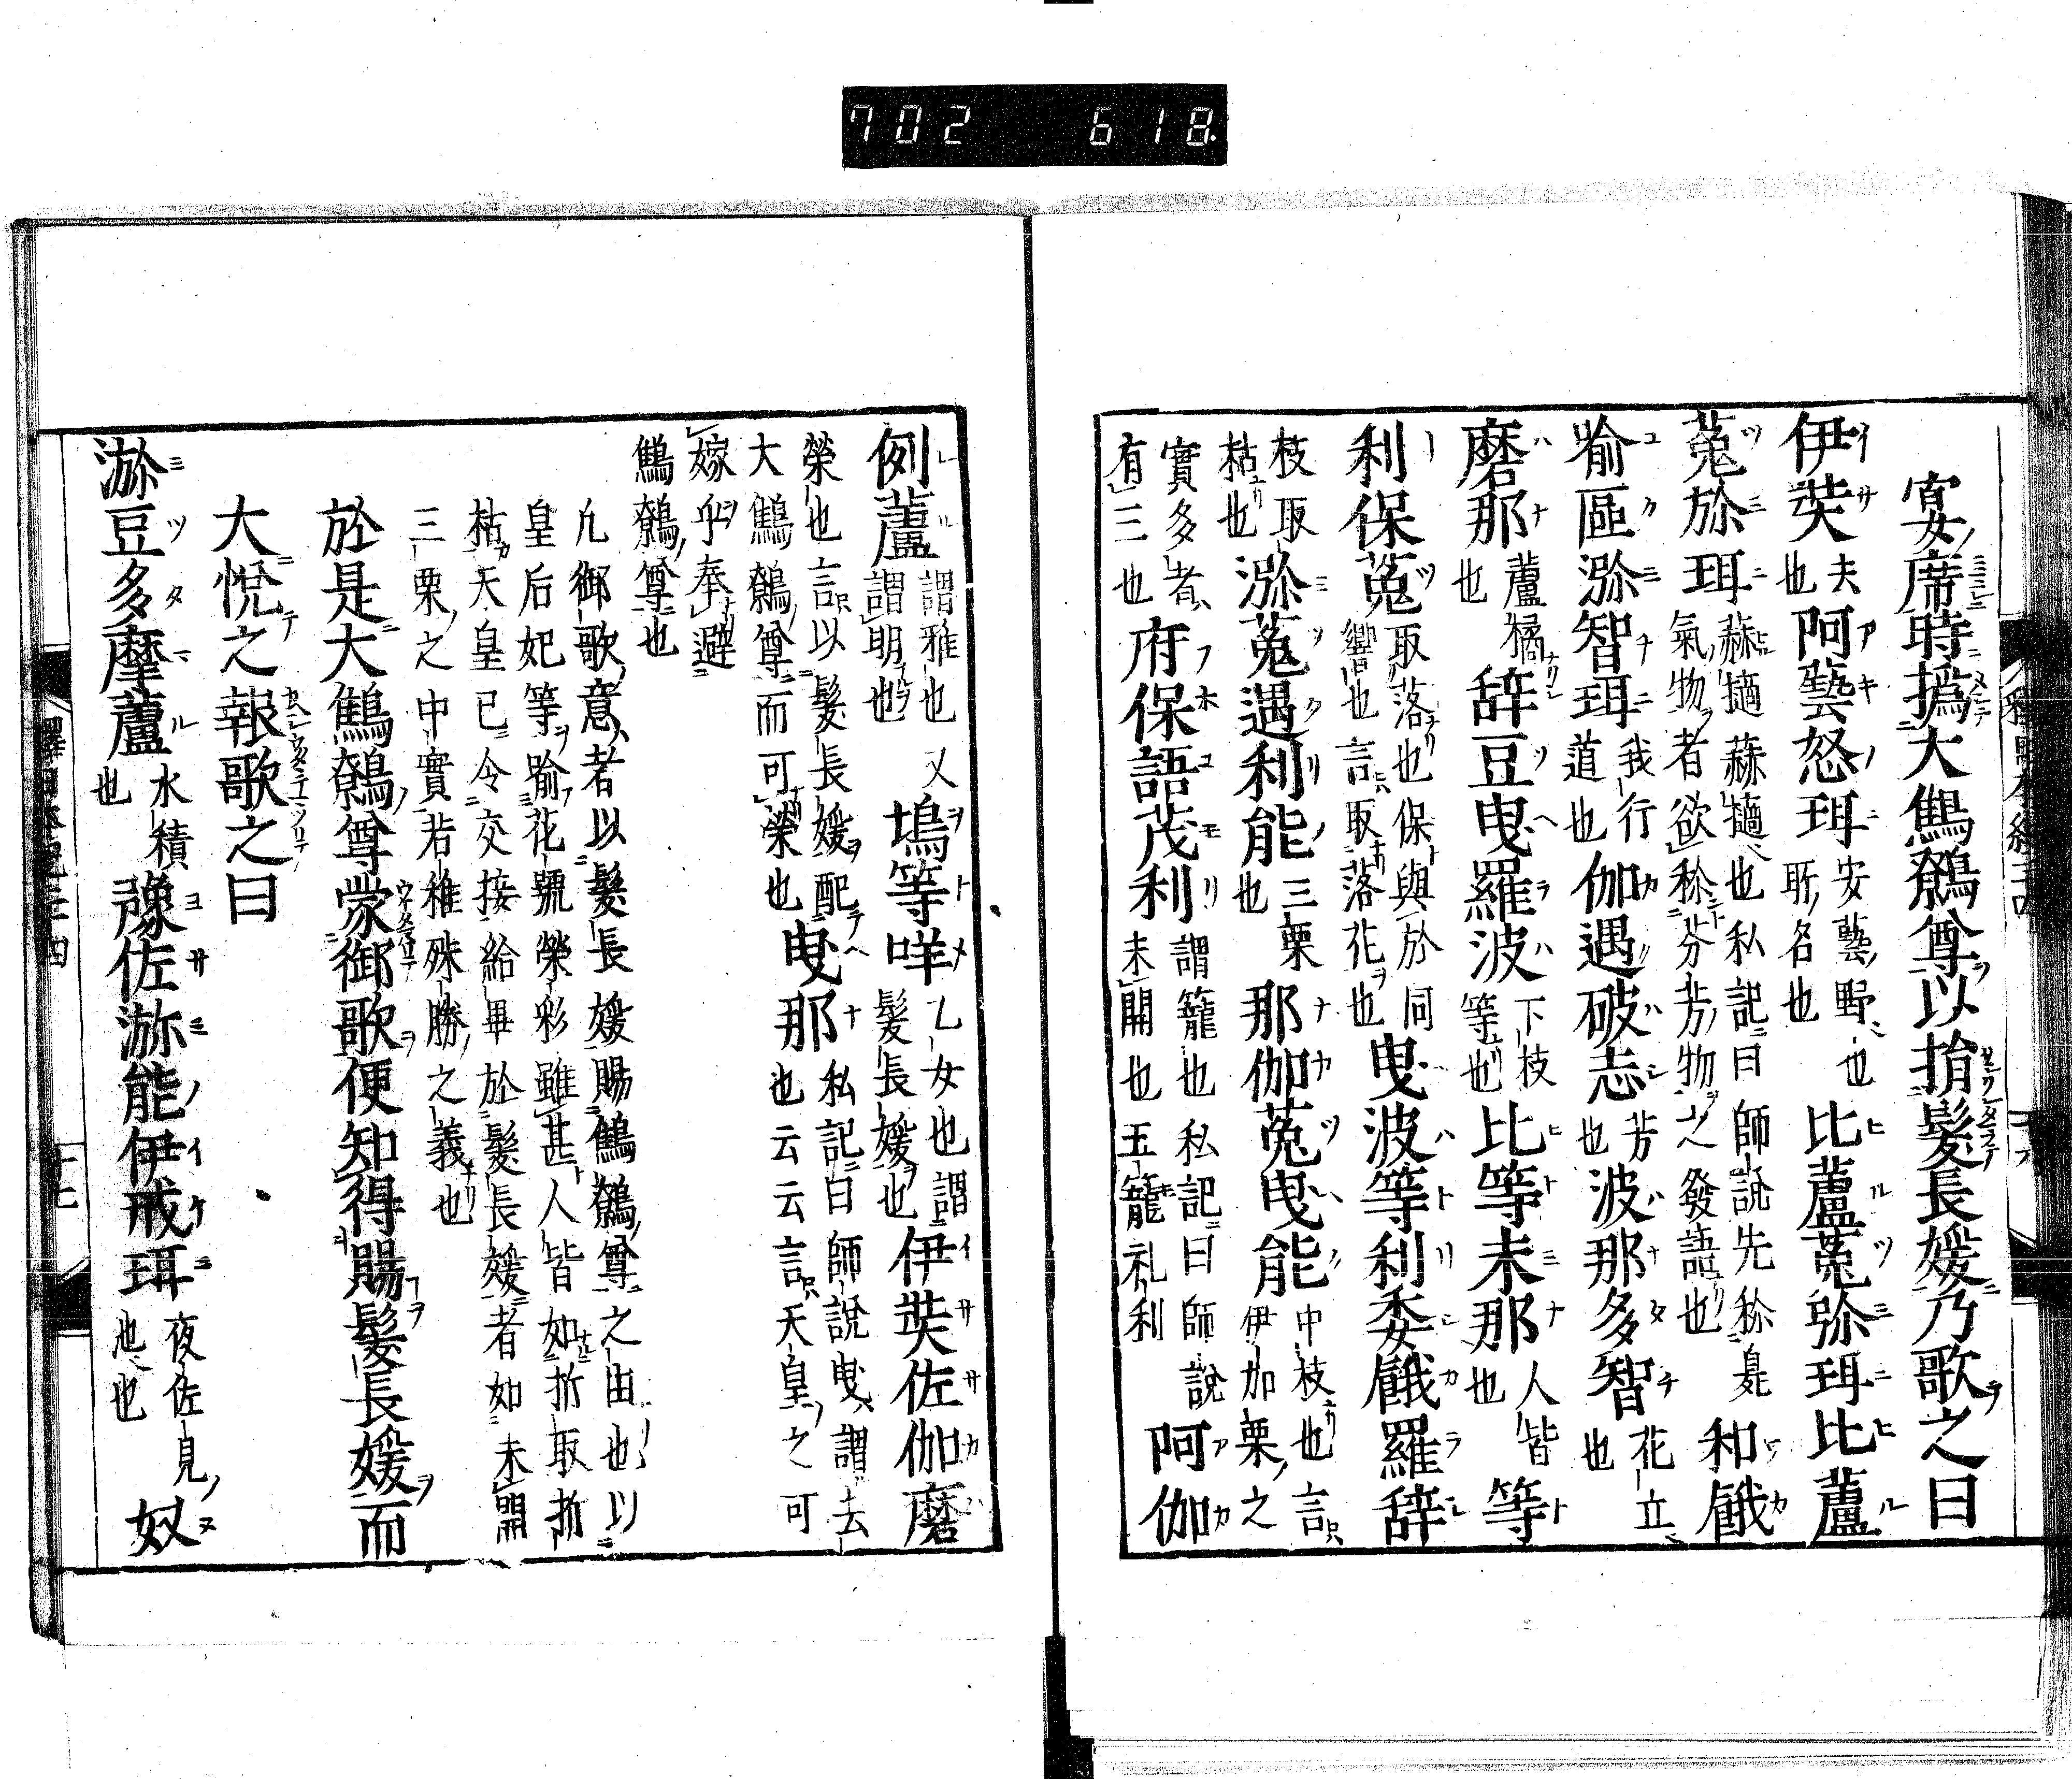 702 618
宴席時撝大鷦鷯尊以指髮長媛乃歌之曰
伊奘夫也阿藝怒珥安藝野也所名也比蘆菟弥珥比蘆
菟弥珥蒜擿蒜擿也私記曰師說先称臭氣物者欲称芬芳物之發語也和餓
喻區瀰智珥我行道也伽遇破志芳也波那多智花立也
磨那蘆橘也辞豆曳羅波下枝等也比等未那人皆也等
利保菟取落也保與於同響也言取落花也曳波等利委餓羅辞
枝取枯也瀰菟遇利能三栗也那伽菟曳能中枝也言伊加栗之
實多者有三也府保語茂利謂籠也私記曰師說未開也玉籠礼利阿伽
例蘆謂雅也又謂明也塢等咩乙女也謂髮長媛也伊奘佐伽磨
榮也言以髮長媛配大鷦鷯尊而可榮也曳那私記曰師說曳謂去也云云言天皇之可
嫁乎奉避鷦鷯尊也
凡御歌意者以髮長媛賜鷦鷯尊之由也以
皇后妃等喻花號榮彩雖甚人皆如折取折
枯天皇已令交接給畢於髮長媛者如未開
三栗之中實若稚殊勝之義也
於是大鷦鷯尊蒙御歌便知得賜髮長媛而
大悅之報歌之曰
瀰豆多摩蘆水積也豫佐瀰能伊戒珥夜佐見池也奴